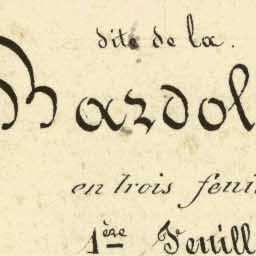 dite de la.
Bardol
en trois feui
1ère Feuill